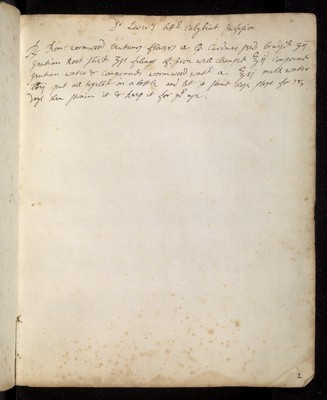 Dr Lowers bitt: Calybiat Infusion
℞ Rom: wormwood Centaury flowers a B. Carduus seed bruised ʒij
Gentian Root slic'd fileings of Iron well clensed compound
gentian water & Compound wormwood watt a. milk water
put all togeth in a bottle and let it stand close stopt for
days then strain it & keep it for yr use.
2